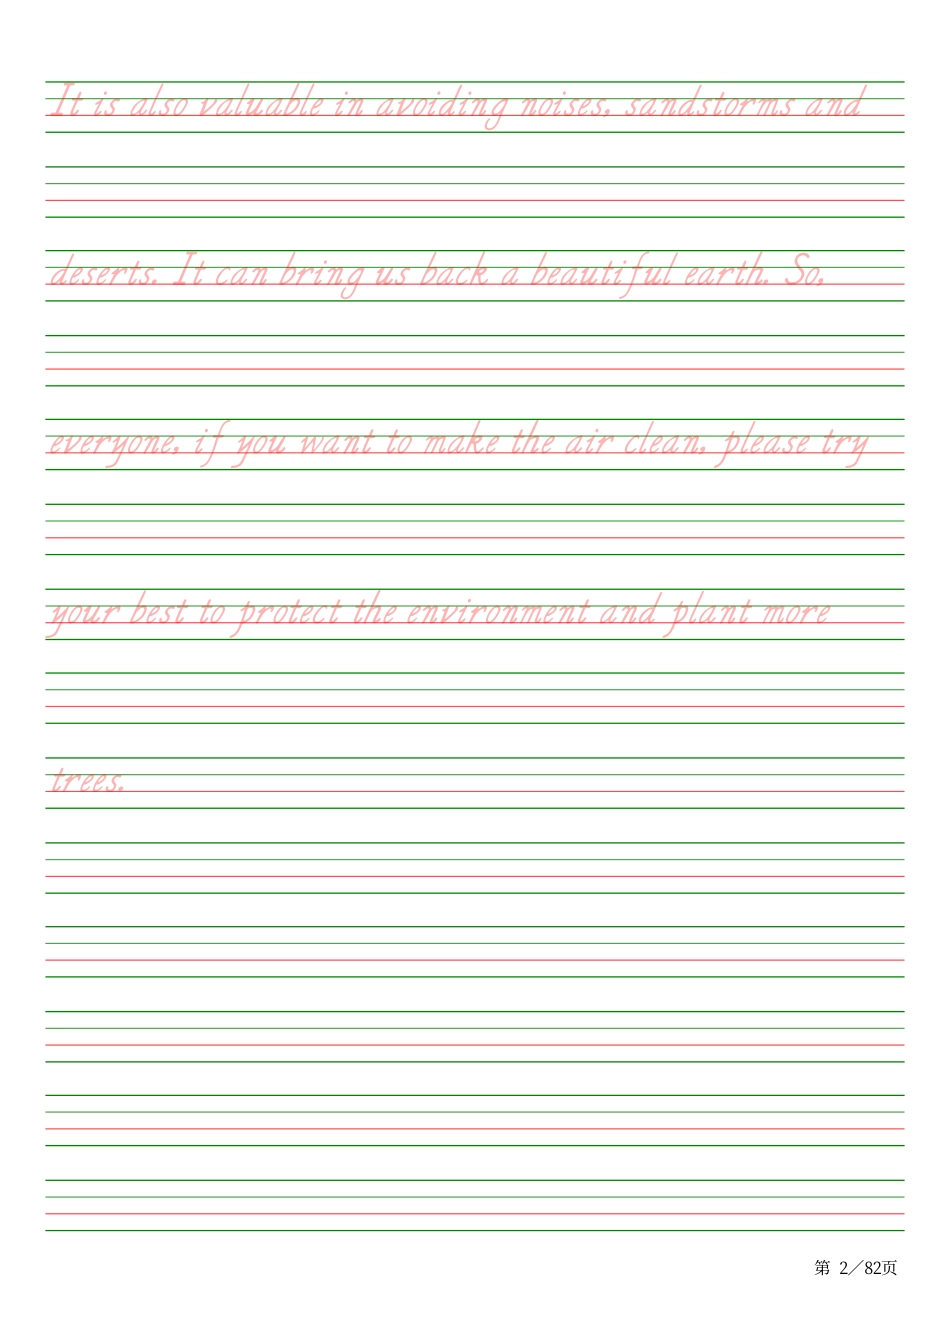 It is also valuable in avoiding noises, sandstorms and
deserts. It can bring us back a beautiful earth. So,
everyone, if you want to make the air clean, please try
your best to protect the environment and plant more
trees.
第 2／82页